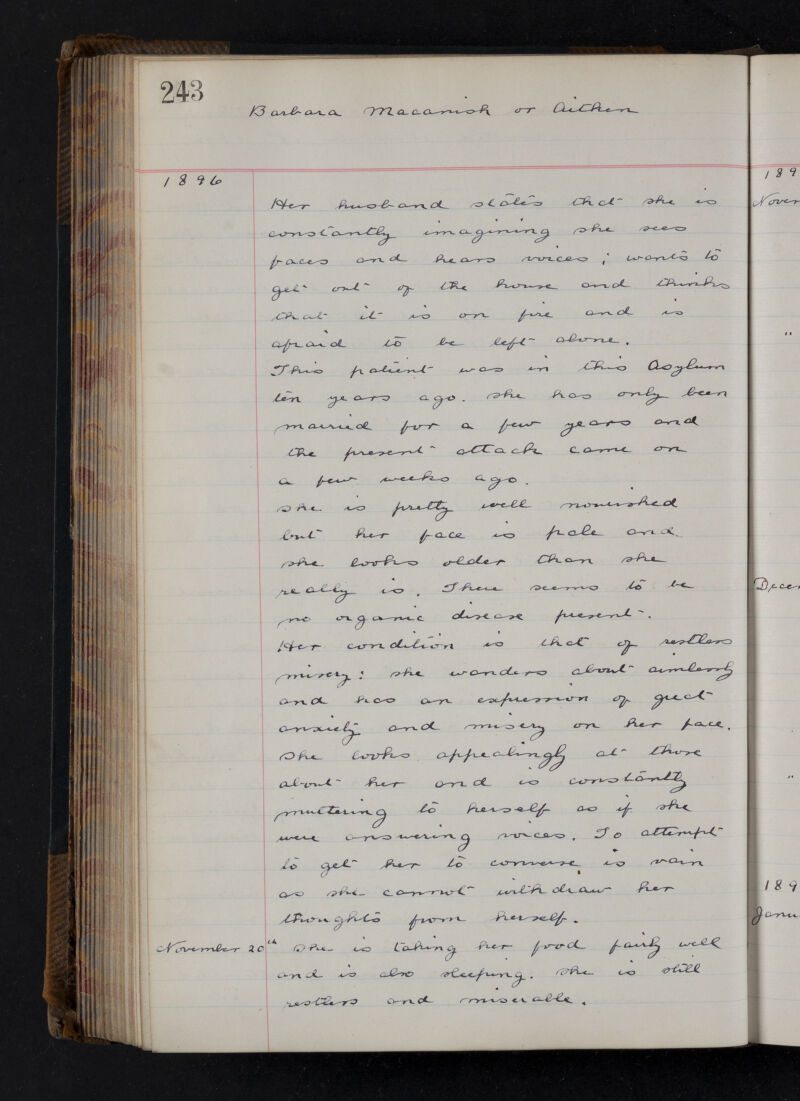 243
Barbara Macanish or Aitken
1896
Her husband states that she is
constantly imagining she sees
faces and hears voices; wants to
get out of the house and thinks
that it is on fire and is
afraid to be left alone.
This patient was in this Asylum
ten years ago. She has only been
married for a few years and
the present attack came on
a few weeks ago.
She is pretty well nourished
but her face is pale and
she looks older than she
really is. There seems to be
no organic disease present.
Her condition is that of restless
misery: she wanders about aimlessly
and has an expression of great
anxiety and misery on her face.
She looks appealingly at those
about her and is constantly
muttering to herself as if she
were answering voices. To attempt
to get her to converse is vain
as she cannot withdraw her
thoughts from herself.
November 20th She is taking her food fairly well
and is also sleeping. She is still
restless and miserable.
189
Novem
"
Decem
"
189
Janu